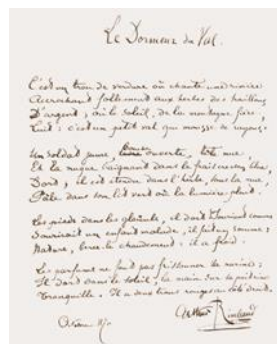 Le Dormeur du Val.
C'est un trou de verdure où chante une rivière
Accrochant follement aux herbes des haillons
D'argent ; où le soleil, de la montagne fière,
Luit : c'est un petit val qui mousse de rayons.
Un soldat jeune, bouche ouverte, tête nue,
Et la nuque baignant dans le frais cresson bleu,
Dort ; il est étendu dans l'herbe, sous la nue,
Pâle dans son lit vert où la lumière pleut.
Les pieds dans les glaïeuls, il dort. Souriant comme
Sourirait un enfant malade, il fait un somme :
Nature, berce-le chaudement : il a froid.
Les parfums ne font pas frissonner sa narine ;
Il dort dans le soleil, la main sur sa poitrine
Tranquille. Il a deux trous rouges au côté droit.
Arthur Rimbaud